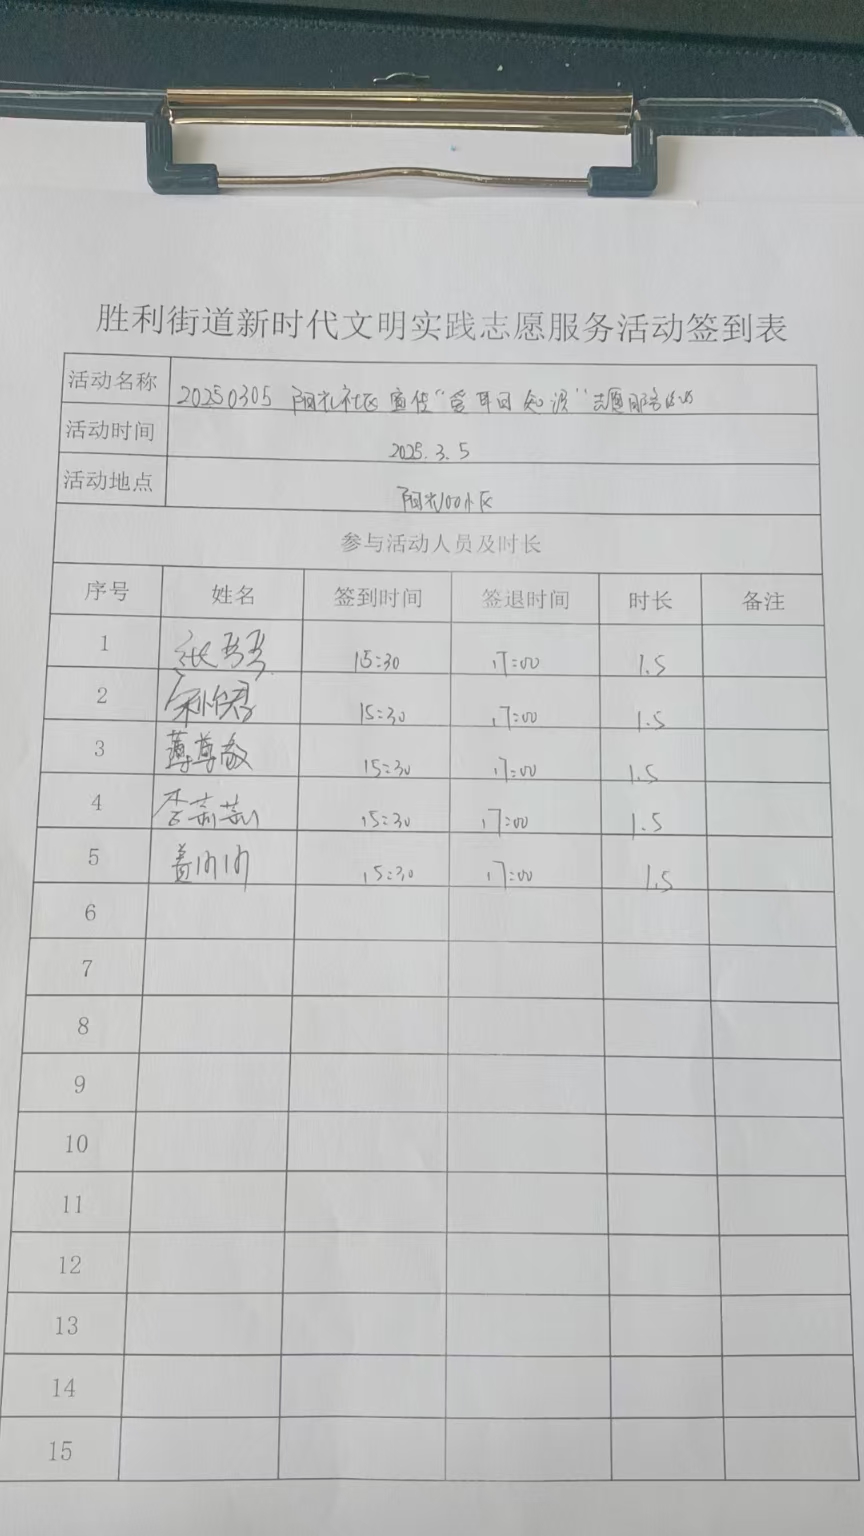 胜利街道新时代文明实践志愿服务活动签到表
活动名称 20250305 阳光社区宣传“爱耳日知识”志愿服务活动
活动时间 2025.3.5
活动地点 阳光100小区
参与活动人员及时长
序号 姓名 签到时间 签退时间 时长 备注
1 15:30 17:00 1.5
2 15:30 17:00 1.5
3 薄尊敬 15:30 17:00 1.5
4 15:30 17:00 1.5
5 15:30 17:00 1.5
6
7
8
9
10
11
12
13
14
15